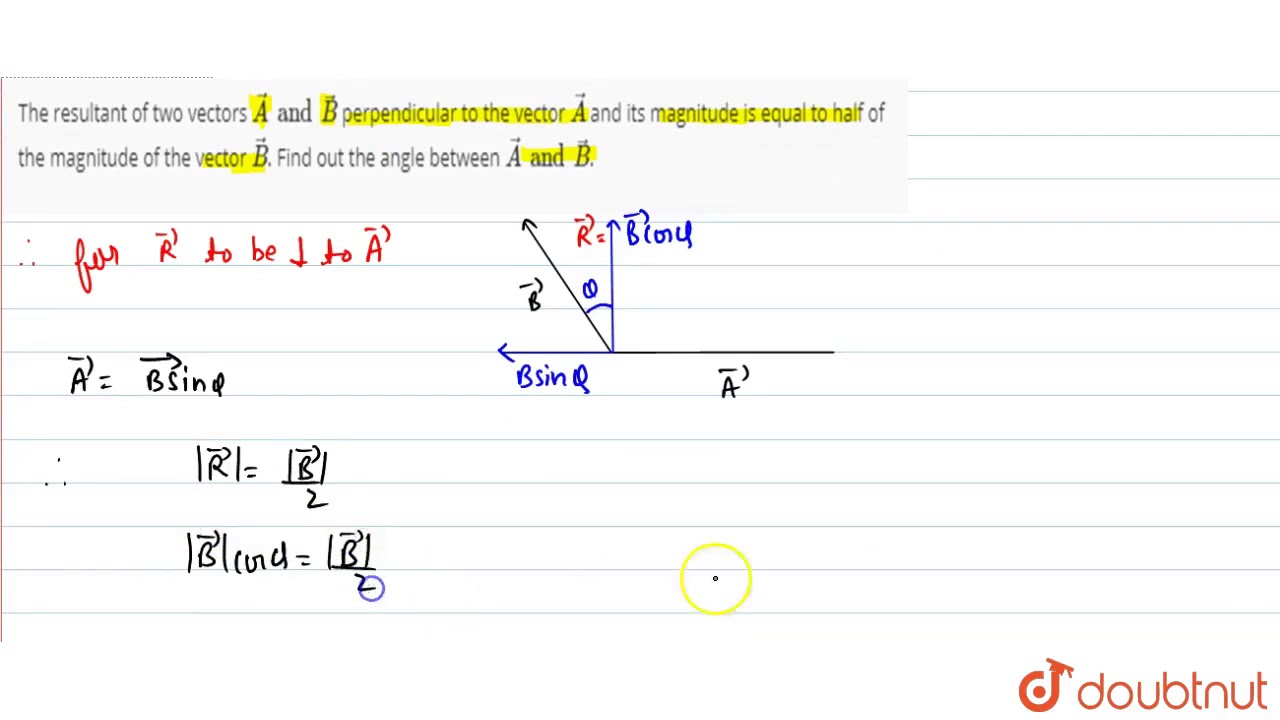 The resultant of two vectors $\vec{A}$ and $\vec{B}$ perpendicular to the vector $\vec{A}$ and its magnitude is equal to half of
the magnitude of the vector $\vec{B}$. Find out the angle between $\vec{A}$ and $\vec{B}$.
∴ for $\vec{R}$ to be ⊥ to $\vec{A}$
$\vec{R}$ = $\vec{B}$cosθ
θ
$\vec{B}$
$\vec{A}$ = $\overrightarrow{B\sin θ}$
Bsinθ
$\vec{A}$
∴ |$\vec{R}$| = |$\vec{B}$|/2
|$\vec{B}$|cosθ = |$\vec{B}$|/2
doubtnut